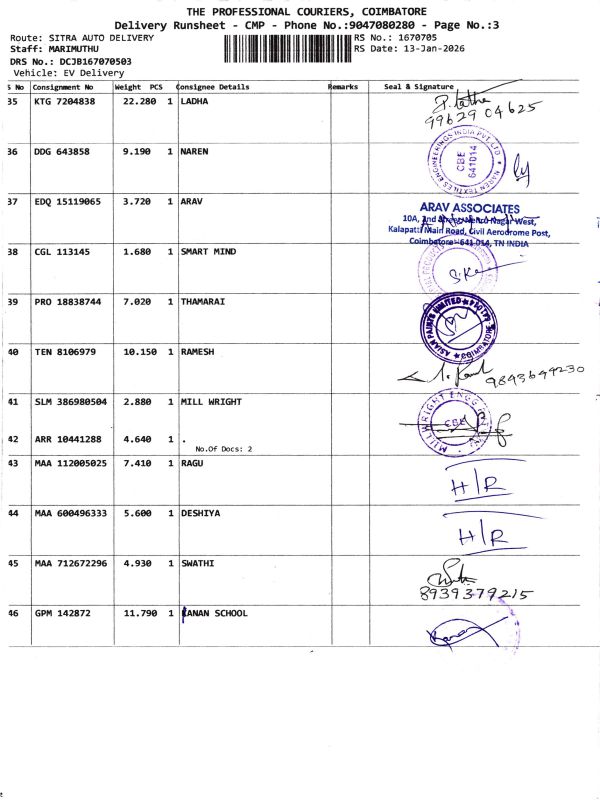 THE PROFESSIONAL COURIERS, COIMBATORE
Delivery Runsheet - CMP - Phone No.:9047080280 - Page No.:3
Route: SITRA AUTO DELIVERY RS No.: 1670705
Staff: MARIMUTHU RS Date: 13-Jan-2026
DRS No.: DCJB167070503
Vehicle: EV Delivery
S No Consignment No Weight PCS Consignee Details Remarks Seal & Signature
35 KTG 7204838 22.280 1 LADHA
99629 04625
36 DDG 643858 9.190 1 NAREN
NAREN TEXTILES ENGINEERINGS INDIA PVT LTD
CBE
641014
37 EDQ 15119065 3.720 1 ARAV
ARAV ASSOCIATES
Kalapatti Main Road, Civil Aerodrome Post,
Coimbatore - 641 014, TN INDIA
38 CGL 113145 1.680 1 SMART MIND
39 PRO 18838744 7.020 1 THAMARAI
ASIAN PAINTS LIMITED
COIMBATORE
40 TEN 8106979 10.150 1 RAMESH
9893649230
41 SLM 386980504 2.880 1 MILL WRIGHT
MILLWRIGHT ENGG
CBE
42 ARR 10441288 4.640 1 .
No.Of Docs: 2
43 MAA 112005025 7.410 1 RAGU
H/R
44 MAA 600496333 5.600 1 DESHIYA
H/R
45 MAA 712672296 4.930 1 SWATHI
8939379215
46 GPM 142872 11.790 1 KANAN SCHOOL